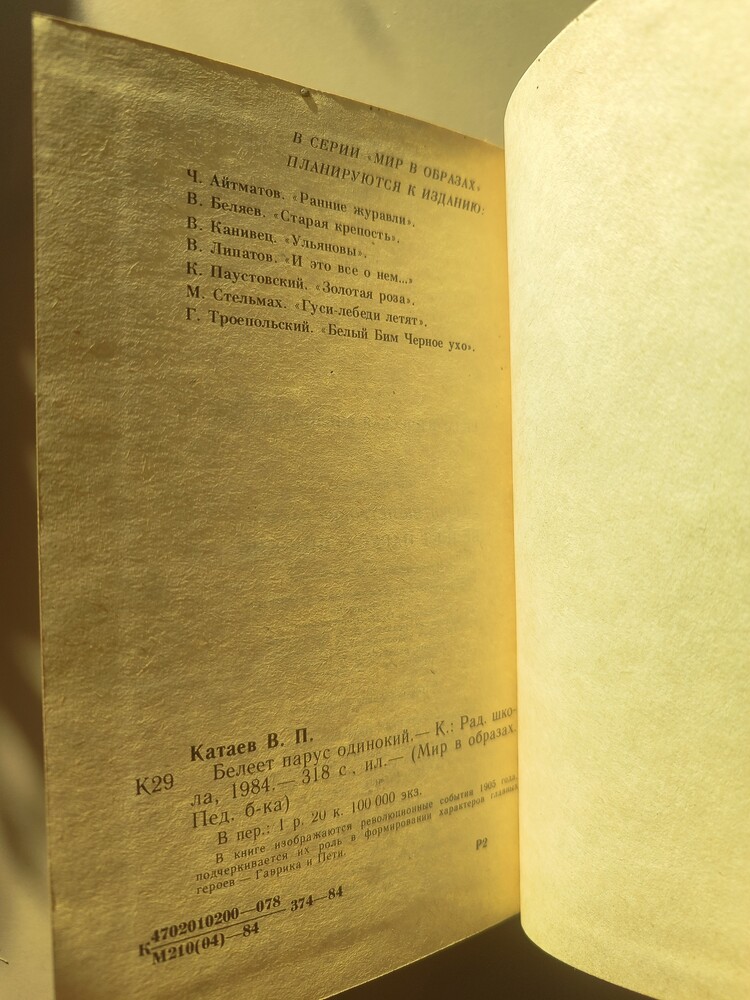 В СЕРИИ «МИР В ОБРАЗАХ»
ПЛАНИРУЮТСЯ К ИЗДАНИЮ:
Ч. Айтматов. «Ранние журавли».
В. Беляев. «Старая крепость».
В. Канивец. «Ульяновы».
В. Липатов. «И это все о нем...»
К. Паустовский. «Золотая роза».
М. Стельмах. «Гуси-лебеди летят».
Г. Троепольский. «Белый Бим Черное ухо».
Катаев В. П.
К29 Белеет парус одинокий.— К.: Рад. шко-
ла, 1984.— 318 с., ил.— (Мир в образах.
Пед. б-ка)
В пер.: 1 р. 20 к. 100 000 экз.
В книге изображаются революционные события 1905 года,
подчеркивается их роль в формировании характеров главных
героев — Гаврика и Пети.
Р2
К 4702010200—078 374—84
М210(04)—84